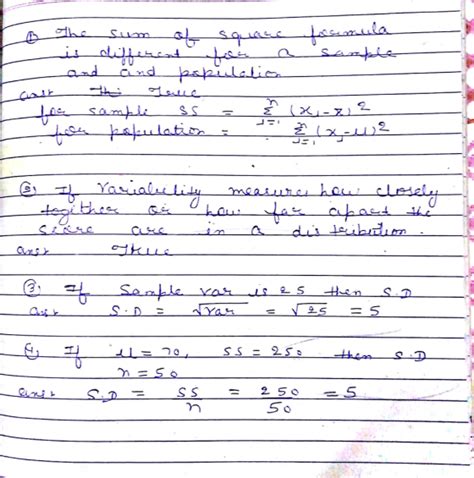 ① The sum of square formula
is different for a sample
and and population
ans: This True
for sample SS = Σⁿⱼ₌₁ (xⱼ-x̄)²
for population = Σⁿⱼ₌₁ (xⱼ-μ)²
② If variability measures how closely
together or how far apart the
score are in a distribution.
ans: True
③ If Sample var is 25 then S.D
ans: S.D = √var = √25 = 5
④ If μ = 70, SS = 250 then S.D
n = 50
ans: S.D = SS/n = 250/50 = 5